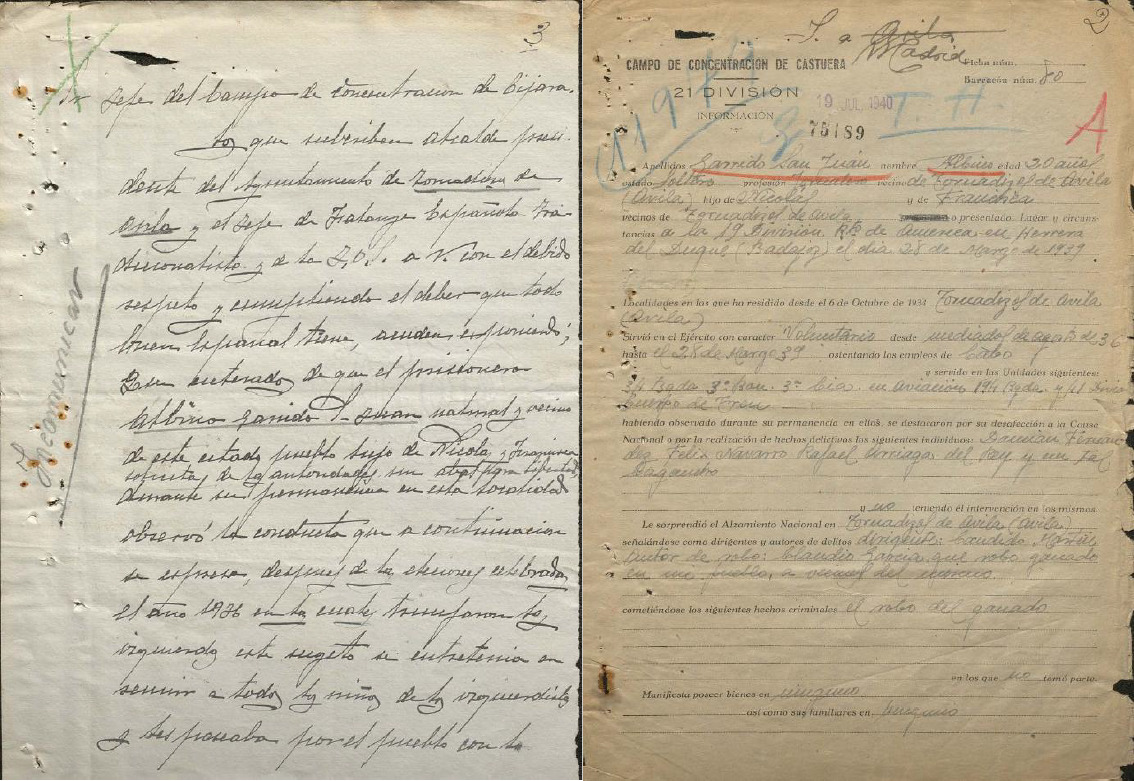 3
Sr Jefe del Campo de Concentracion de Cijara.
Los que subscriben Alcalde presi-
dente del Ayuntamiento de Tornadizos de
Avila y el Jefe de Falange Española Tra-
dicionalista y de la J.O.S. a V. con el debido
respeto y cumpliendo el deber que todo
buen Español tiene, acuden exponiendo;
que enterados de que el prisionero
Albino Garrido S. Juan natural y vecino
de este pueblo hijo de Nicolas y Francisca
solicita de las autoridades un
durante su permanencia en esta localidad
observó la conducta que a continuacion
se expresa, despues de las elecciones celebradas
el año 1936 en las cuales triunfaron las
izquierdas este sugeto se entretenia en
reunir a todos los niños de los izquierdistas
y les paseaba por el pueblo con la
Incomunicar
2
S. a Avila
Madrid
CAMPO DE CONCENTRACIÓN DE CASTUERA
Ficha núm.
Barracón núm. 80
21 DIVISIÓN
19 JUL. 1940
INFORMACIÓN
T. H.
A
Apellidos Garrido San Juan nombre Albino edad 20 años
estado soltero profesión vecino de Tornadizos de Avila
(Avila) hijo de Nicolás y de Francisca
vecinos de Tornadizos de Avila o presentado. Lugar y circuns-
tancias a la 19 División, en Herrera
del Duque (Badajoz) el día 28 de Marzo de 1939
Localidades en los que ha residido desde el 6 de Octubre de 1934 Tornadizos de Avila
(Avila)
Sirvió en el Ejército con caracter Voluntario desde mediados de agosto de 36
hasta el 28 de Marzo 39 ostentando los empleos de Cabo
y servido en las Unidades siguientes:
3ª Bon. 3ª Cia. en aviación 191 Bgda. y
Cuerpo de Tren
habiendo observado durante su permanencia en ellos, se destacaron por su desafección a la Causa
Nacional o por la realización de hechos delictivos los siguientes individuos: Damián Fernan-
dez Felix Navarro Rafael Arriagas del Rey y un tal
Dagaubo
y no teniendo el intervención en los mismos.
Le sorprendió el Alzamiento Nacional en Tornadizos de Avila (Avila)
señalándose como dirigentes y autores de delitos dirigente: Candido Martin
autor de robo: Claudio Garcia que robo ganado
en mi pueblo, a vecinos del mismo
cometiéndose los siguientes hechos criminales el robo del ganado
en los que no tomó parte.
Manifiesta poseer bienes en ninguno
así como sus familiares en, ninguno